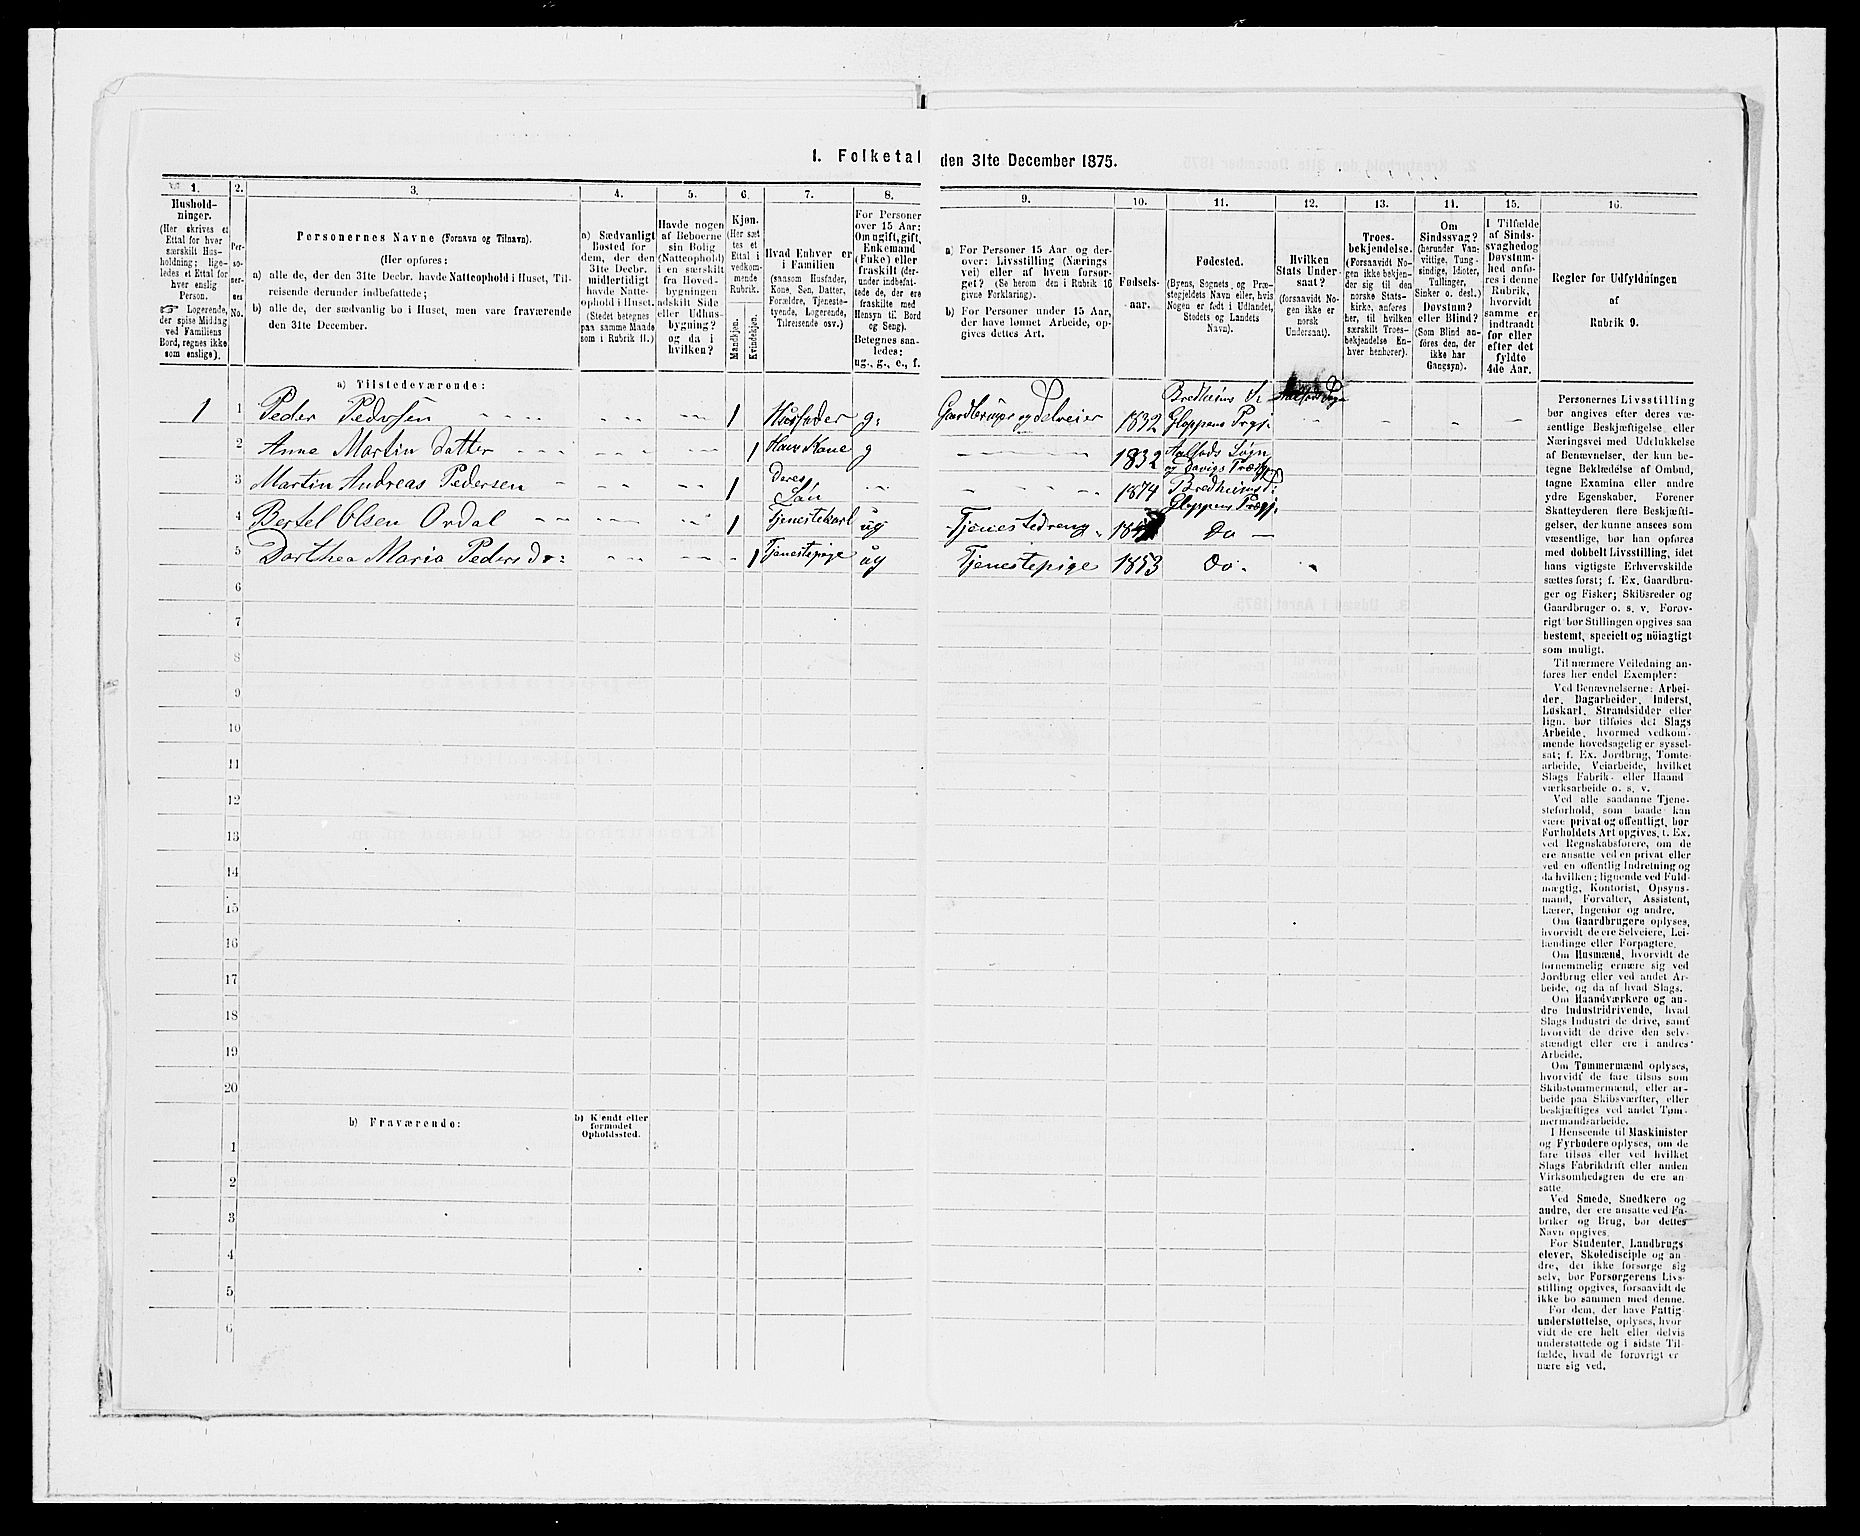 1. Folketal den 31te December 1875.
1.
2.
3.
4.
5.
6.
7.
8.
9.
10.
11.
12.
13.
14.
15.
16.
Hushold-
ninger.
(Her skrives et
Ettal for hver
særskilt Hus-
holdning; lige-
ledes et Ettal for
hver enslig
Person.
☞ Logerende,
der spise Middag
ved Familiens
Bord, regnes ikke
som enslige).
Per-
so-
ner-
nes
No.
Personernes Navne (Fornavn og Tilnavn).
(Her opføres:
a) alle de, der den 31te Decbr. havde Natteophold i Huset, Til-
reisende derunder indbefattede;
b) alle de, der sædvanlig bo i Huset, men vare fraværende
den 31te December.
a) Sædvanligt
Bosted for
dem, der den
31te Decbr.
midlertidigt
havde Natte-
ophold i Huset.
(Stedet betegnes
paa samme Maade
som i Rubrik 11.)
Havde nogen
af Beboerne
sin Bolig
(Natteophold)
i en særskilt
fra Hoved-
bygningen
adskilt Side
eller Udhus-
bygning?
og da i
hvilken?
Kjøn.
(Her sæt
tes et
Ettal i
vedkom-
mende
Rubrik.
Mandkjøn.
Kvindekjøn.
Hvad Enhver er
i Familien
(saasom Husfader,
Kone, Søn, Datter,
Forældre, Tjeneste-
tyende, Logerende,
Tilreisende osv.)
For Personer
over 15 Aar:
Om ugift, gift,
Enkemand
(Enke) eller
fraskilt (der-
under indbefat-
tede de, der ere
fraskilte med
Hensyn til Bord
og Seng).
Betegnes saa-
ledes:
ug., g., e., f.
a) For Personer 15 Aar og der-
over: Livsstilling (Nærings
vei) eller af hvem forsør-
get? (Se herom den i Rubrik 16
givne Forklaring).
b) For Personer under 15 Aar,
der have lønnet Arbeide, op-
gives dettes Art.
Fødsels-
aar.
Fødested.
(Byens, Sognets, og Præ-
stegjeldets Navn eller, hvis
Nogen er født i Udlandet,
Stedets og Landets
Navn).
Hvilken
Stats Under-
saat?
(forsaavidt No-
gen ikke er
norsk
Undersaat).
Troes-
bekjendelse.
(Forsaavidt No-
gen ikke bekjen-
der sig til den
norske Stats-
kirke, anføres
her, til hvilken
særskilt Troes-
bekjendelse En-
hver henhører).
Om
Sindssvag?
(herunder Van-
vittige, Tung-
sindige, Idioter,
Tullinger,
Sinker o. desl.)
Døvstum?
eller Blind?
(Som Blind an-
føres den, der
ikke har
Gangsyn).
I Tilfælde
af Sinds-
svaghed og
Døvstum-
hed anfø-
res i denne
Rubrik,
hvorvidt
samme er
indtraadt
før eller
efter det
fyldte
4de Aar.
Regler for Udfyldningen
af
Rubrik 9.
a) Tilstedeværende:
1 1 Peder Pedersen 1 Husfader g. Gaardbruger og Selveier 1832 Bredheims S. Gloppens Prgj.
2 Anne Martin datter 1 Hans Kone g 1832 Aalfods Sogn og Davigs Præstgj.
3 Martin Andreas Pedersen 1 Deres Søn 1874 Bredheims S. Gloppens Prægj.
4 Bertel Olsen Ordal 1 Tjenestekarl ug Tjenestedreng Do
5 Dorthea Maria Pedersdr 1 Tjenestepige ug Tjenestepige 1853 Do
6
7
8
9
10
11
12
13
14
15
16
17
18
19
20
b) Fraværende:
b) Kjendt eller
formodet
Opholdssted.
1
2
3
4
5
6
Personernes Livsstilling
bør angives efter deres væ-
sentlige Beskjæftigelse eller
Næringsvei med Udelukkelse
af Benævnelser, der kun be-
tegne Beklædelse af Ombud,
tagne Examina eller andre
ydre Egenskaber. Forener
Skatteyderen flere Beskjæfti-
gelser, der kunne ansees som
væsentlige, bør han opføres
med dobbelt Livsstilling, idet
hans vigtigste Erhvervskilde
sættes først; f. Ex. Gaardbru-
ger og Fisker; Skibsreder og
Gaardbruger o. s. v. Forøv-
rigt bør Stillingen opgives saa
bestemt, specielt og nöiagtigt
som muligt.
Til nærmere Veiledning an-
føres her endel Exempler:
Ved Benævnelserne: Arbei-
der, Dagarbeider, Inderst,
Løskarl, Strandsidder eller
lign. bør tilføies det Slags
Arbeide, hvormed vedkom-
mende hovedsagelig er syssel-
sat; f. Ex. Jordbrug, Tomte-
arbeide, Veiarbeide, hvilket
Slags Fabrik- eller Haand
værksarbeide o. s. v.
Ved alle saadanne Tjene-
steforhold, som baade kan
være privat og offentligt, bør
Forholdets Art opgives, t. Ex.
ved Regnskabsførere, om de
ere ansatte ved en privat eller
ved en offentlig Indretning og
da hvilken; lignende ved Fuld-
mægtig, Kontorist, Opsyns-
mand, Forvalter, Assistent,
Lærer, Ingeniør og andre.
Om Gaardbrugere oplyses,
hvorvidt de ere Selveiere, Lei-
lændinge eller Forpagtere.
Om Husmænd, hvorvidt de
fornemmelig ernære sig ved
Jordbrug eller ved andet Ar-
beide, og da af hvad Slags.
Om Haandværkere og an-
dre Industridrivende, hvad
Slags Industri de drive, samt
hvorvidt de drive den selv-
stændigt eller ere i andres
Arbeide.
Om Tømmermænd oplyses,
hvorvidt de fare tilsøs som
Skibstømmermænd, eller ar-
beide paa Skibsværfter, eller
beskjæftiges ved andet Tøm-
mermandsarbeide.
I Henseende til Maskinister
og Fyrbødere oplyses, om de
fare tilsøs eller ved hvilket
Slags Fabrikdrift eller anden
Virksomhedsgren de ere an-
satte.
Ved Smede, Snedkere og
andre, der ere ansatte ved Fa-
briker og Brug, bør dettes
Navn opgives.
For Studenter, Landbrugs
elever, Skoledisciple og an
dre, der ikke forsørge sig
selv, bør Forsørgerens Livs-
stilling opgives, forsaavidt de
ikke bo sammen med denne.
For dem, der have Fattig
understøttelse, oplyses, hvor
vidt de ere helt eller delvis
understøttede og i sidste Til-
fælde, hvad de forøvrigt er
nære sig ved.